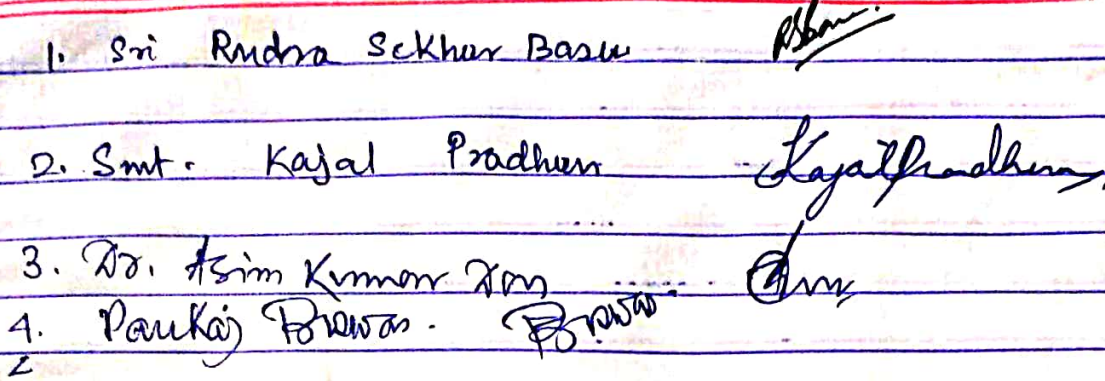 1. Sri Rudra Sekhar Basu RSBasu
2. Smt. Kajal Pradhan Kajal Pradhan
3. Dr. Asim Kumar Das
4. Pankaj Biswas. Biswas